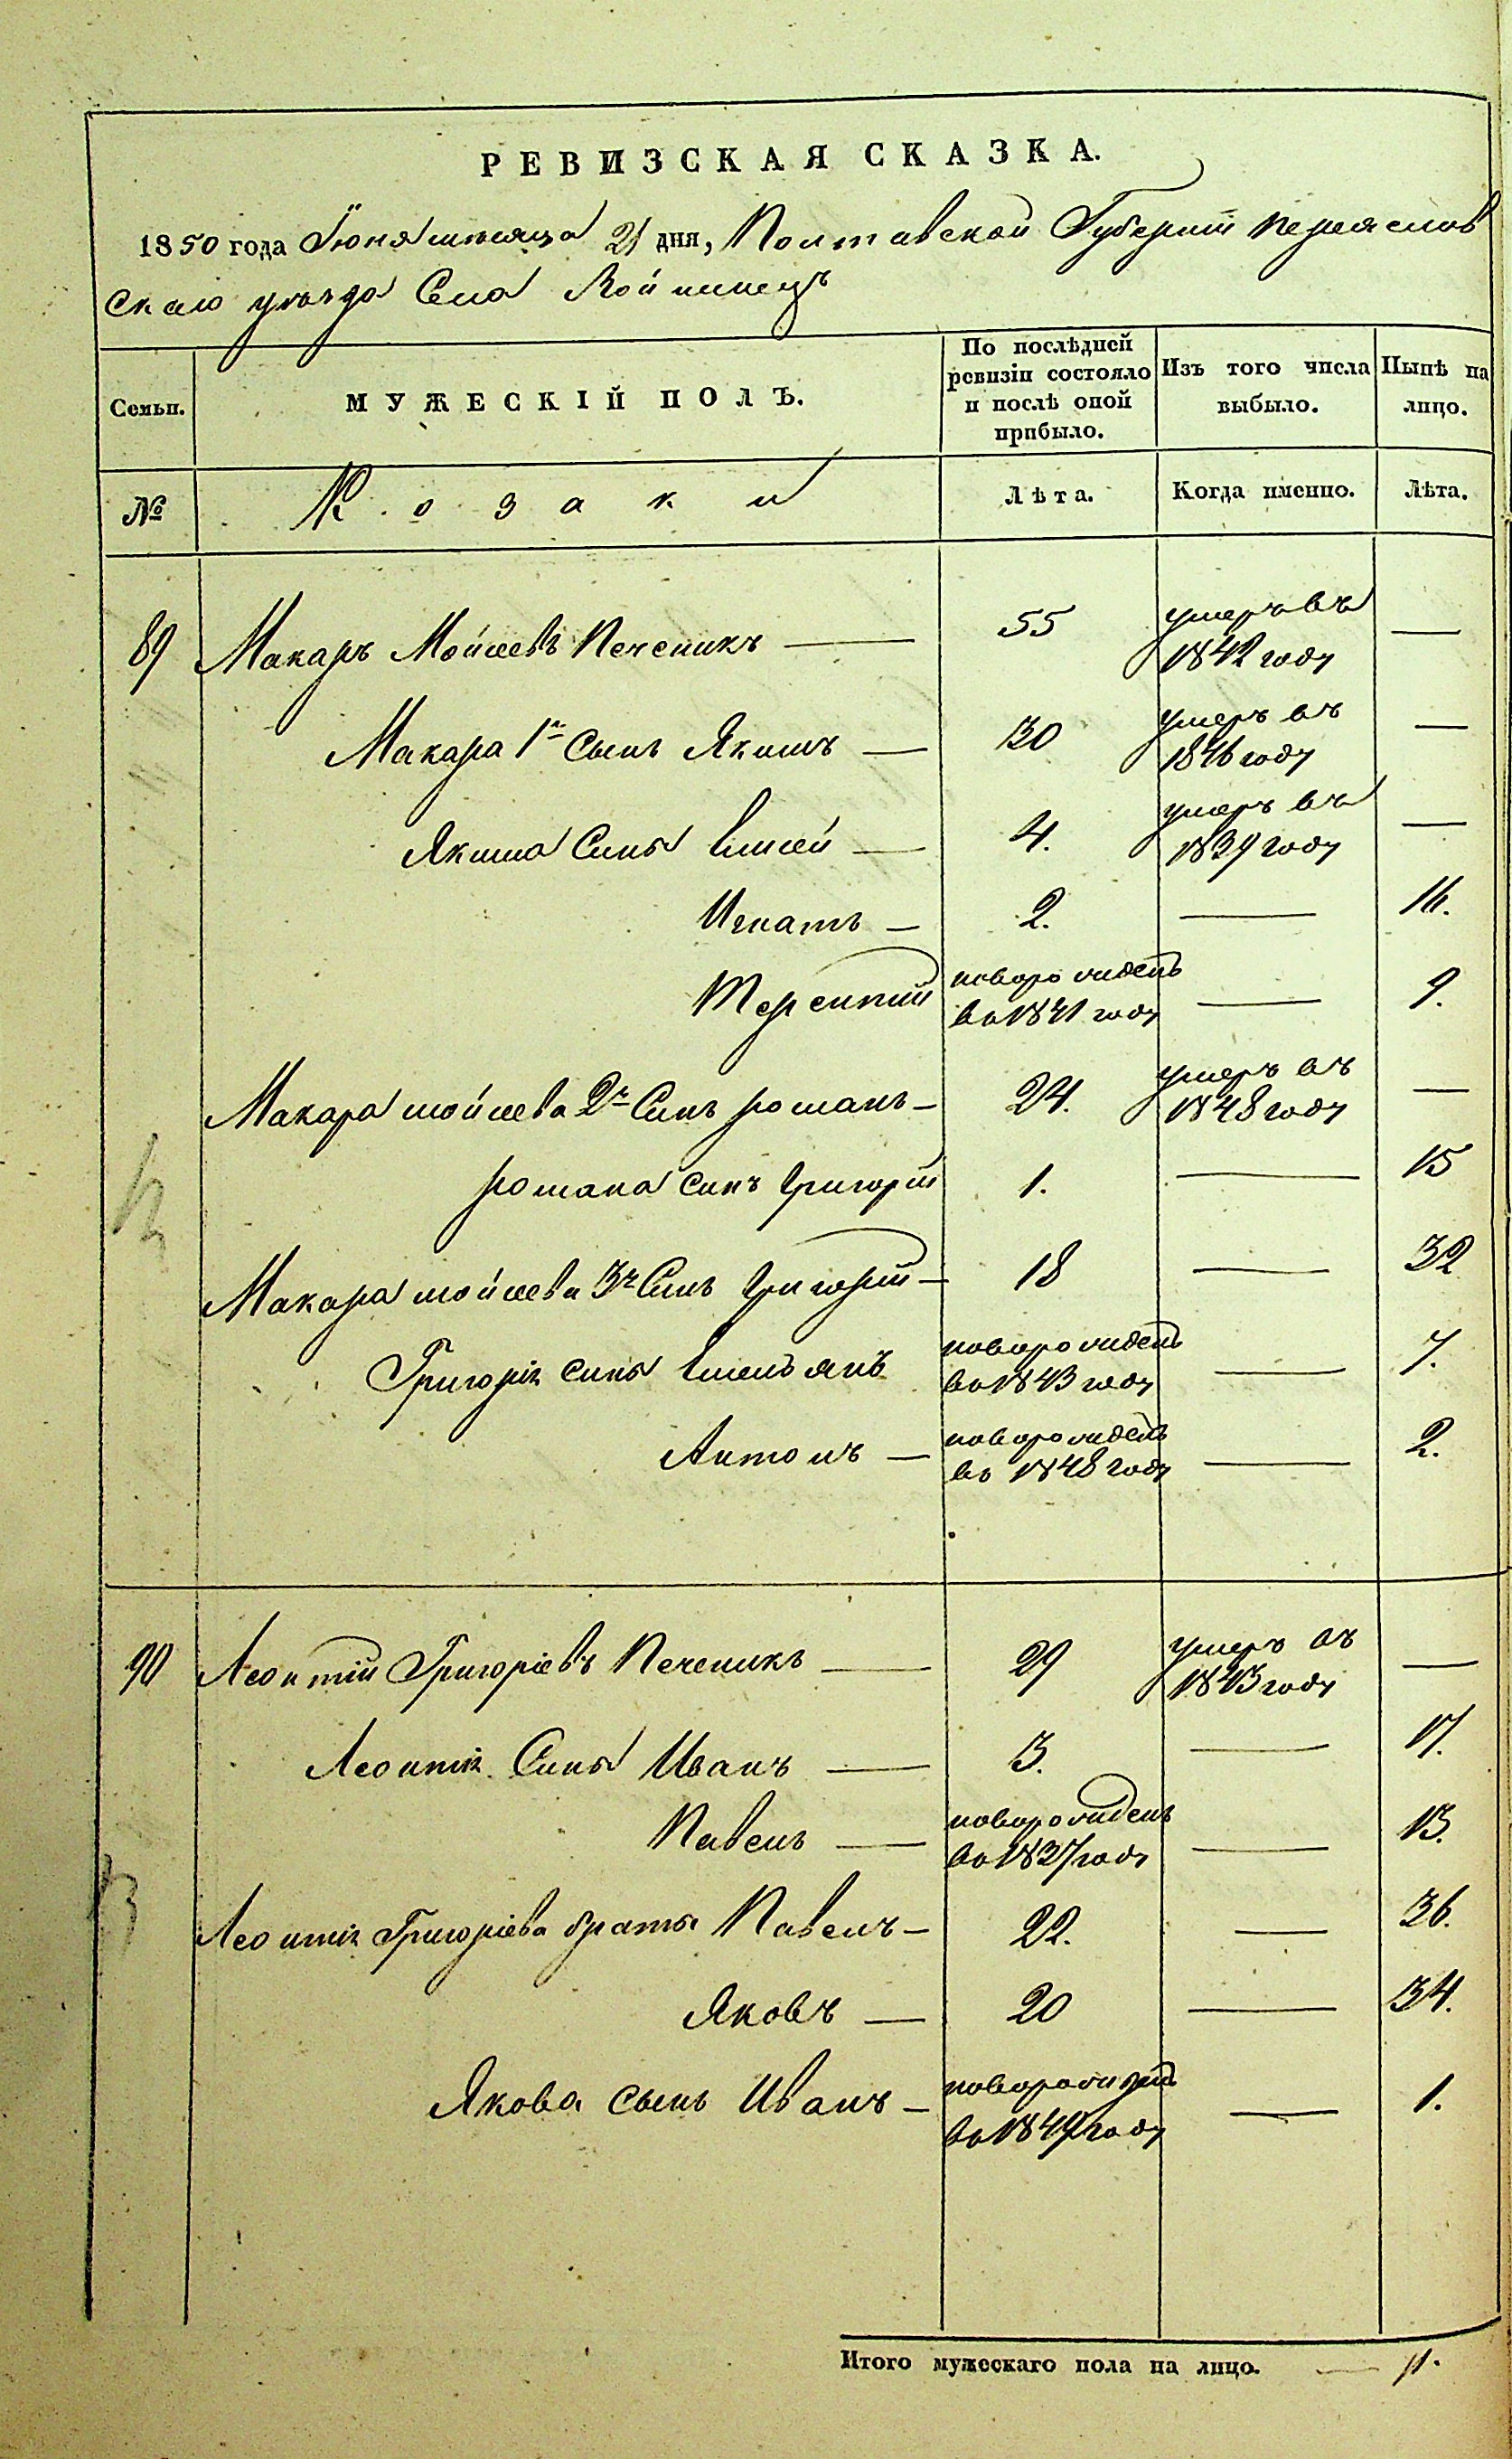 РЕВИЗСКАЯ СКАЗКА.
1850 года Іюня мѣсяца 21 дня, Полтавской Губерніи Переяслов
скаго уѣзда Села Войнинецъ
Семьи.
МУЖЕСКІЙ ПОЛЪ.
По послѣдней ревизіи состояло и послѣ оной прибыло.
Изъ того числа выбыло.
Нынѣ на лицо.
№
Козаки
Лѣта.
Когда именно.
Лѣта.
89 Макаръ Мойсеевъ Печеникъ — 55 умеръ въ 1842 году —
Макара 1й Сынъ Якимъ — 30 умеръ въ 1846 году —
Якима Сины Елисей — 4. умеръ въ 1839 году —
Игнатъ — 2. — 16.
Терентій новорожденъ въ 1841 году — 9.
Макара мойсеева 2й Синъ романъ — 24. умеръ въ 1848 году —
романа синъ Григорій 1. — 15
Макара мойсеева 3й Синъ Григорій — 18 — 32
Григорія сины Емельянъ новорожденъ въ 1843 году — 7.
Антонъ — новорожденъ въ 1848 году — 2.
90 Леонтій Григоріевъ Печеникъ — 29 умеръ въ 1843 году —
Леонтія Сины Иванъ — 3. — 17.
Павелъ — новорожденъ въ 1837 году — 13.
Леонтія Григоріева браты Павелъ — 22. — 36.
Яковъ — 20 — 34.
Якова сынъ Иванъ — новорожденъ въ 1849 году — 1.
Итого мужескаго пола на лицо. — 11.